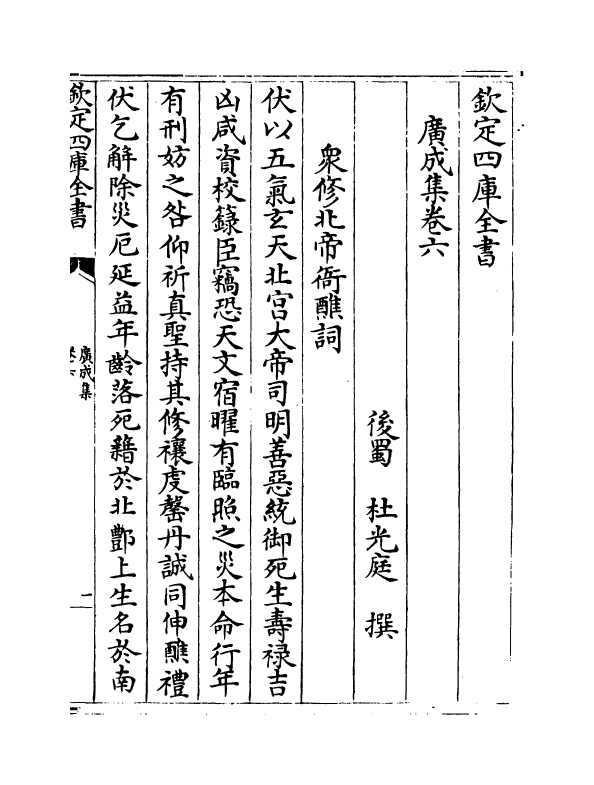 欽定四庫全書
廣成集卷六
後蜀　杜光庭　撰
衆修北帝衙醮詞
伏以五氣玄天北宫大帝司明善惡統御死生壽禄吉
凶咸資校籙臣竊恐天文宿曜有臨照之災本命行年
有刑妨之咎仰祈真聖持其修禳虔罄丹誠同伸醮禮
伏乞解除災厄延益年齡落死籍於北酆上生名於南
欽定四庫全書
廣成集
卷六
一